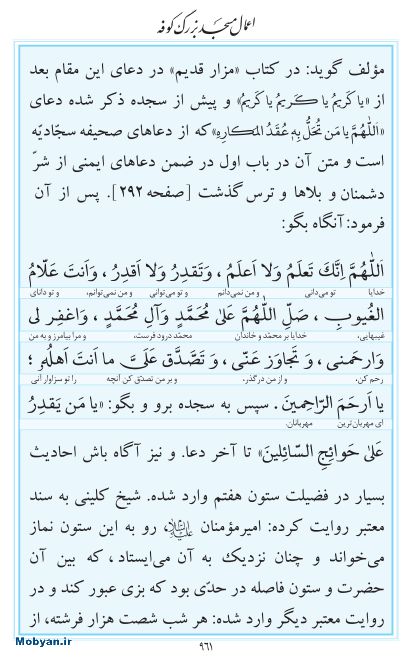 اعمال مسجد بزرگ کوفه
مؤلف گوید: در کتاب «مزار قدیم» در دعای این مقام بعد
از «یا کَریمُ یا کَریمُ یا کَریمُ» و پیش از سجده ذکر شده دعای
«اَللّٰهُمَّ یا مَن تُحَلُّ بِهِ عُقَدُ المَکارِهِ» که از دعاهای صحیفه سجّادیّه
است و متن آن در باب اول در ضمن دعاهای ایمنی از شرّ
دشمنان و بلاها و ترس گذشت [صفحه ۲۹۲]. پس از آن
فرمود: آنگاه بگو:
اَللّٰهُمَّ اِنَّكَ تَعلَمُ وَلا اَعلَمُ ، وَتَقدِرُ وَلا اَقدِرُ ، وَاَنتَ عَلّامُ
خدایا تو می‌دانی و من نمی‌دانم و تو می‌توانی و من نمی‌توانم، و تو دانای
الغُیوبِ ، صَلِّ اللّٰهُمَّ عَلیٰ مُحَمَّدٍ وَآلِ مُحَمَّدٍ ، وَاغفِر لی
غیبهایی، خدایا بر محمّد و خاندان محمّد درود فرست، و مرا بیامرز و به من
وَارحَمنی ، وَ تَجاوَز عَنّی ، وَ تَصَدَّق عَلَیَّ ما اَنتَ اَهلُهُ ؛
رحم کن، و از من درگذر، و بر من تصدّق کن آنچه را تو سزاوار آنی
یا اَرحَمَ الرّاحِمینَ . سپس به سجده برو و بگو: «یا مَن یَقدِرُ
ای مهربان‌ترین مهربانان.
عَلیٰ حَوائِجِ السّائِلینَ» تا آخر دعا. و نیز آگاه باش احادیث
بسیار در فضیلت ستون هفتم وارد شده. شیخ کلینی به سند
معتبر روایت کرده: امیرمؤمنان علیه‌السلام، رو به این ستون نماز
می‌خواند و چنان نزدیک به آن می‌ایستاد، که بین آن
حضرت و ستون فاصله در حدّی بود که بزی عبور کند و در
روایت معتبر دیگر وارد شده: هر شب شصت هزار فرشته، از
Mobyan.ir
۹۶۱